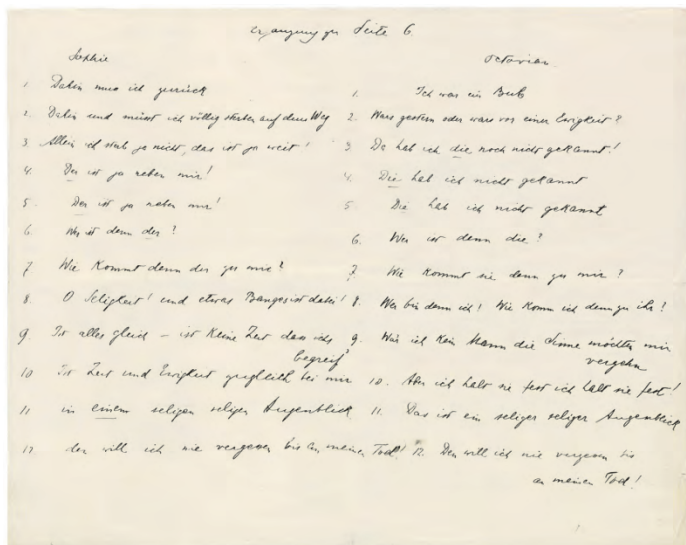 Ergänzung zu Seite 6.
Sophie
1. Dahin muss ich zurück
2. Dahin und müsst ich völlig sterben auf dem Weg
3 Allein ich sterb ja nicht, das ist ja weit!
4. Der ist ja neben mir!
5. Der ist ja neben mir!
6. Wer ist denn der?
7. Wie kommt denn der zu mir?
8. O Seligkeit! und etwas Banges ist dabei!
9. Ist alles gleich – ist keine Zeit dass ichs
begreif
10 Ist Zeit und Ewigkeit zugleich bei mir
11 in einem seligen seligen Augenblick
12 den will ich nie vergessen bis an meinen Tod!
Octavian
1. Ich war ein Bub
2. Wars gestern oder wars vor einer Ewigkeit?
3 Da hab ich die noch nicht gekannt!
4. Die hab ich nicht gekannt
5. Die hab ich nicht gekannt
6. Wer ist denn die?
7. Wie kommt sie denn zu mir?
8. Wer bin denn ich! Wie komm ich denn zu ihr?
9. Wär ich kein Mann die Sinne möchten mir
vergehn
10. Aber ich halt sie fest ich halt sie fest!
11. Das ist ein seliger seliger Augenblick
12. Den will ich nie vergessen bis
an meinen Tod!